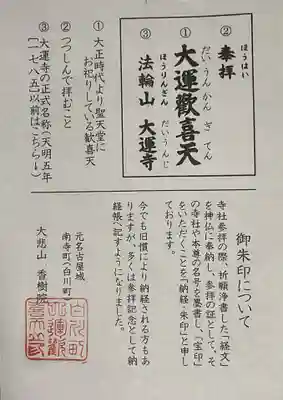 ② 奉拝
ほうはい
① 大運歓喜天
だいうんかんぎてん
③ 法輪山 大運寺
ほうりんざん だいうんじ
① 大正時代より聖天堂に
お祀りしている歓喜天
② つつしんで拝むこと
③ 大運寺の正式名称(天明五年
【一七八五】以前はこちら↓)
御朱印について
寺社参拝の際、祈願浄書した「経文」
を神仏に奉納し、参拝の証として、そ
の寺社や本尊の名号を墨書し、「宝印」
をいただくことを「納経・朱印」と申し
ております。
今でも旧慣により納経される方もあ
りますが、多くは参拝記念として納
経帳へ記すようになりました。
元名古屋城
南寺町・白川町
大悲山 香樹院